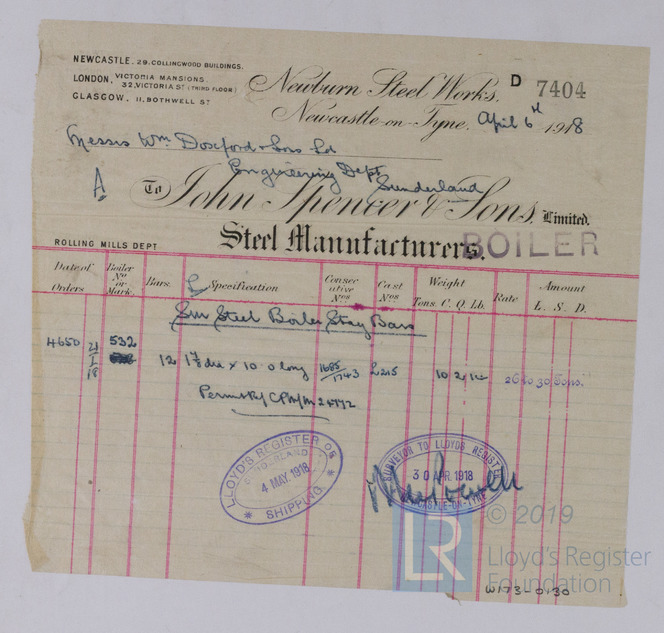 NEWCASTLE. 29, COLLINGWOOD BUILDINGS.
LONDON, VICTORIA MANSIONS. 32, VICTORIA ST (THIRD FLOOR)
GLASGOW, 11, BOTHWELL ST
Newburn Steel Works,
D 7404
Newcastle-on-Tyne, April 6th 1918
Messrs Wm Doxford & Sons Ld
Engineering Dept
Sunderland
A
To John Spencer & Sons, Limited.
Steel Manufacturers.
BOILER
ROLLING MILLS DEPT
Date of Orders Boiler No or Mark. Bars. L Specification Consecutive Nos Cast Nos Weight Tons. C. Q. Lb. Rate Amount L. S. D.
Sm Steel Boiler Stay Bars
4650 21/1/18 532 12 1 7/8 dia x 10.0 long 1685/1743 L215 10 2 14 26 to 30 Tons."
Permit Rf/CPM/M 24772
LLOYD'S REGISTER OF SHIPPING
SUNDERLAND
4 MAY. 1918
SURVEYOR TO LLOYDS REGISTER
30 APR. 1918
NEWCASTLE-ON-TYNE
LR
© 2019
Lloyd's Register
Foundation
W173-0130